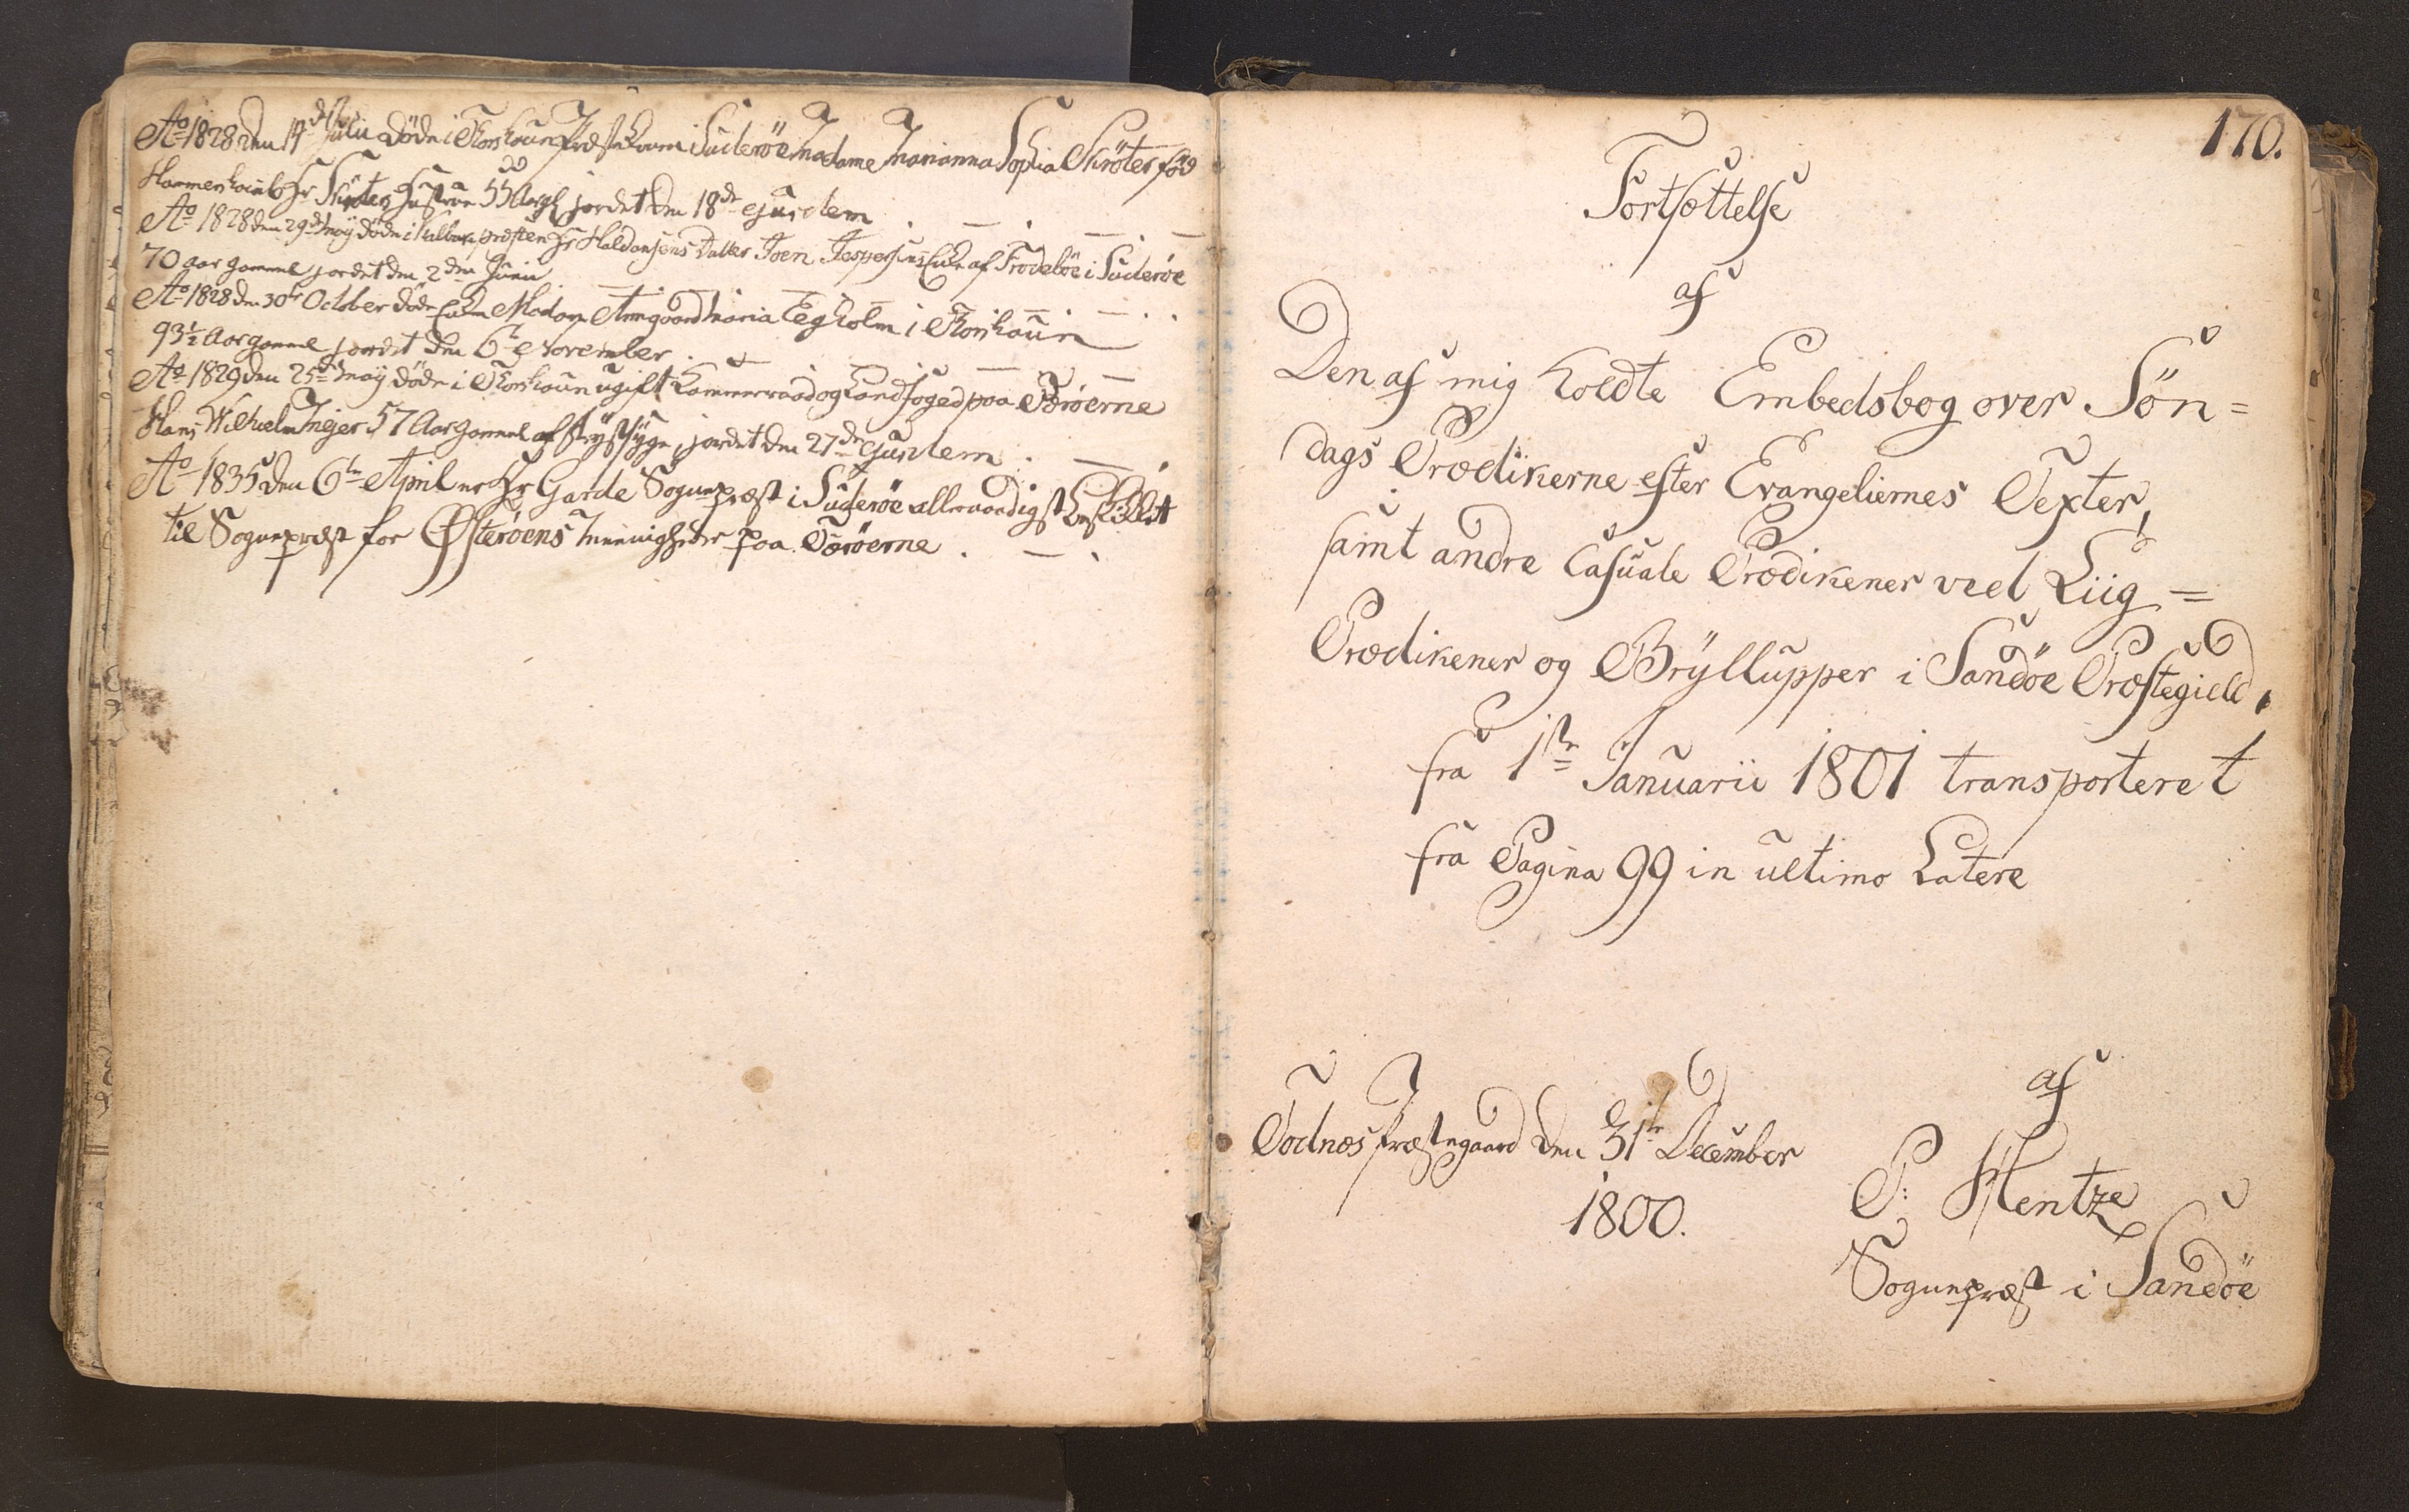 Ao 1828 den 14de Julii Döde i Thorshaun Præstekonen i Suderöe Madame Marianna Sophia Schröter föd
Hammershaimb Hr Schröters Hustrue 55 Aar gl jordet den 18de ejusdem . — . — —
Ao 1828 den 29de Maÿ döde i Præsten Hr Haldansens Datter Joen Jespersens Enke af Frodeböe i Suderöe
70 aar gammel jordet den 2den Junii — . — — . .
Ao 1828 den 30te October döde Enken Madame Armgaard Maria Egholm i Thorshaun
93½ Aar gammel jordet den 6te November . — — —
Ao 1829 den 25de Maÿ döde i Thorshaun ugift Kammerraad og Landfoged paa Færöerne
Hans Wilhelm Mejer 57 Aar gammel af Brÿstsÿge, jordet den 27de ejusdem . — .
Ao 1835 den 6te April er Hr Garde Sognepræst i Suderöe allernaadigst beskikket
til Sognepræst for Østeröens Menigheder paa Færöerne . — .
170.
Fortsættelse
af
Den af mig holdte Embedsbog over Sön=
dags Prædikerne efter Evangeliernes Texter,
samt andre Casuale Prædikener ved Liig=
Prædikener og Brÿllupper i Sandöe Præstegield,
fra 1ste Januarii 1801 transporteret
fra Pagina 99 in ultimo Latere
af
Todnæs Præstegaard den 31te December
1800.
P: Hentze
Sognepræst i Sandöe